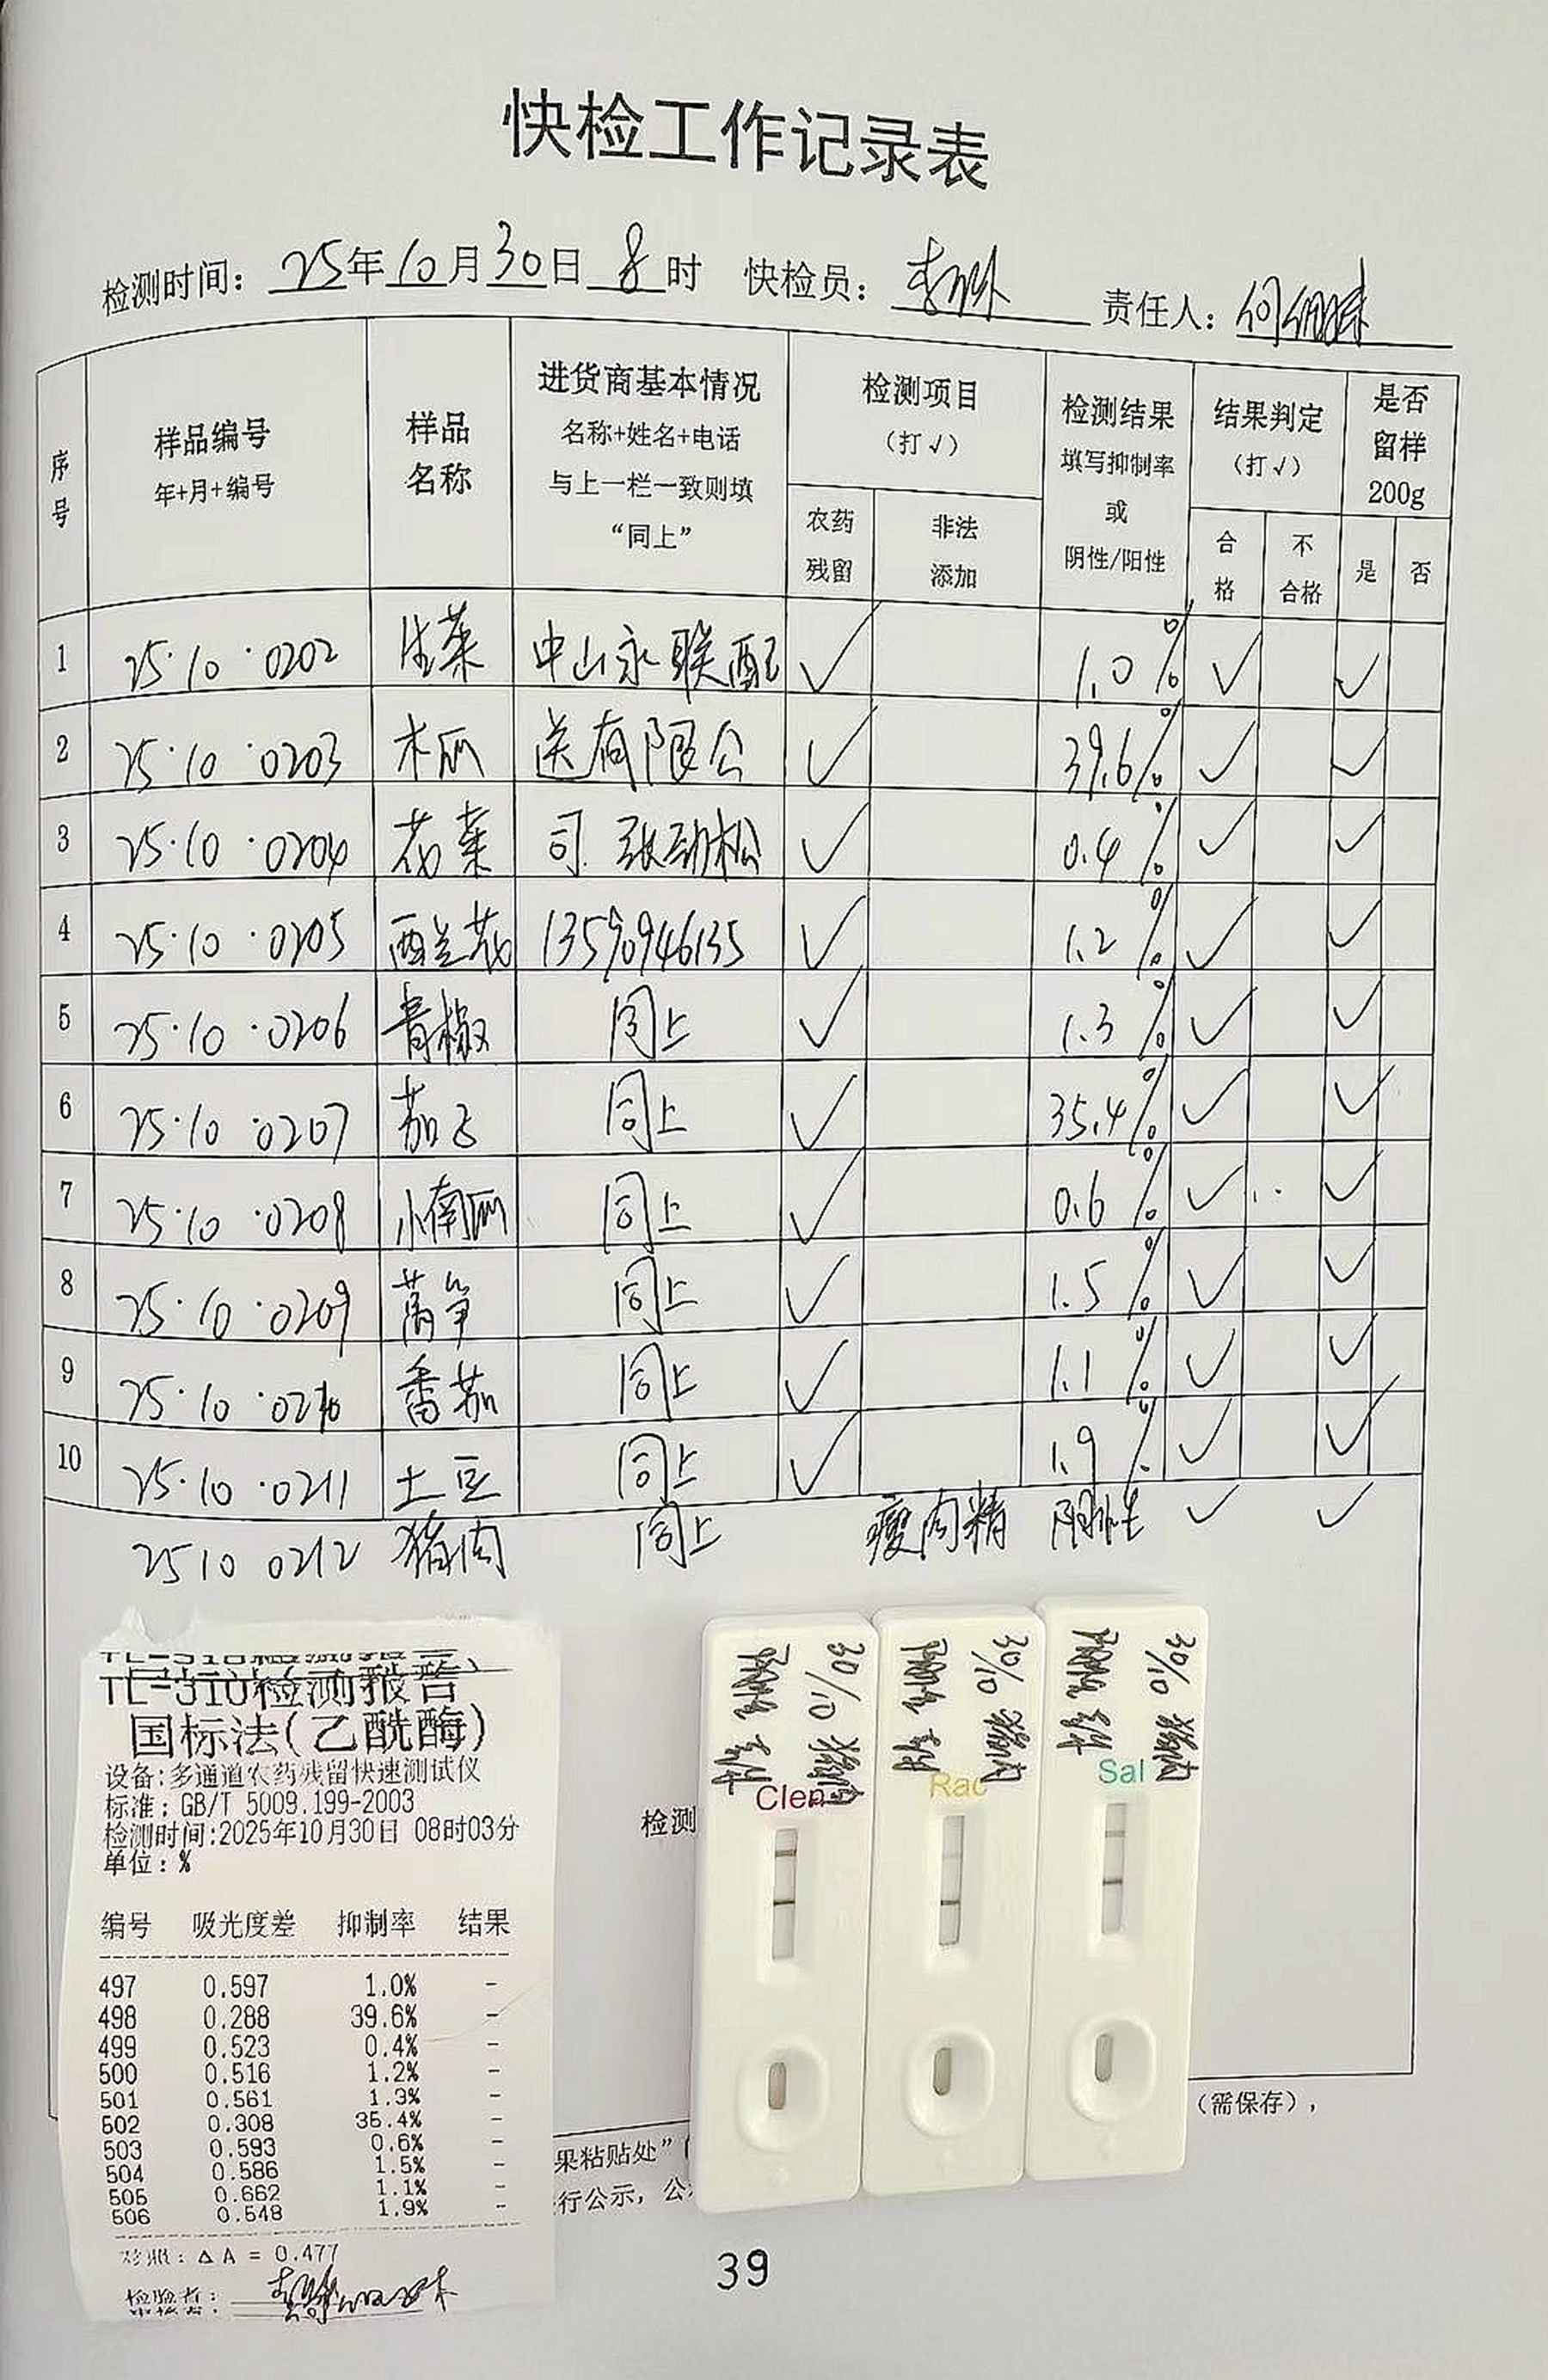 快检工作记录表
检测时间: 25年10月30日8时 快检员: 责任人: 何
序号 样品编号 年+月+编号 样品名称 进货商基本情况 名称+姓名+电话 与上一栏一致则填 “同上” 检测项目 (打√) 农药残留 非法添加 检测结果 填写抑制率 或 阴性/阳性 结果判定 (打√) 合格 不合格 是否留样 200g 是 否
1 25·10·0202 生菜 中山永联配 √ 1.0% √ √
2 25·10·0203 木瓜 送有限公 √ 39.6% √ √
3 25·10·0204 花菜 司 张劲松 √ 0.4% √ √
4 25·10·0205 西兰花 13590946135 √ 1.2% √ √
5 25·10·0206 青椒 同上 √ 1.3% √ √
6 25·10·0207 茄子 同上 √ 35.4% √ √
7 25·10·0208 小南瓜 同上 √ 0.6% √ √
8 25·10·0209 莴笋 同上 √ 1.5% √ √
9 25·10·0210 番茄 同上 √ 1.1% √ √
10 25·10·0211 土豆 同上 √ 1.9% √ √
25 10 0212 猪肉 同上 瘦肉精 阴性 √ √
TL-310检测报告
国标法(乙酰酶)
设备:多通道农药残留快速测试仪
标准: GB/T 5009.199-2003
检测时间:2025年10月30日 08时03分
单位: %
编号 吸光度差 抑制率 结果
497 0.597 1.0% -
498 0.288 39.6% -
499 0.523 0.4% -
500 0.516 1.2% -
501 0.561 1.3% -
502 0.308 35.4% -
503 0.593 0.6% -
504 0.586 1.5% -
505 0.662 1.1% -
506 0.548 1.9% -
对照: ΔA = 0.477
检验者:
检测
30/10 猪肉
Clen
30/10 猪肉
Rac
30/10 猪肉
Sal
(需保存),
果粘贴处”
行公示,公
39